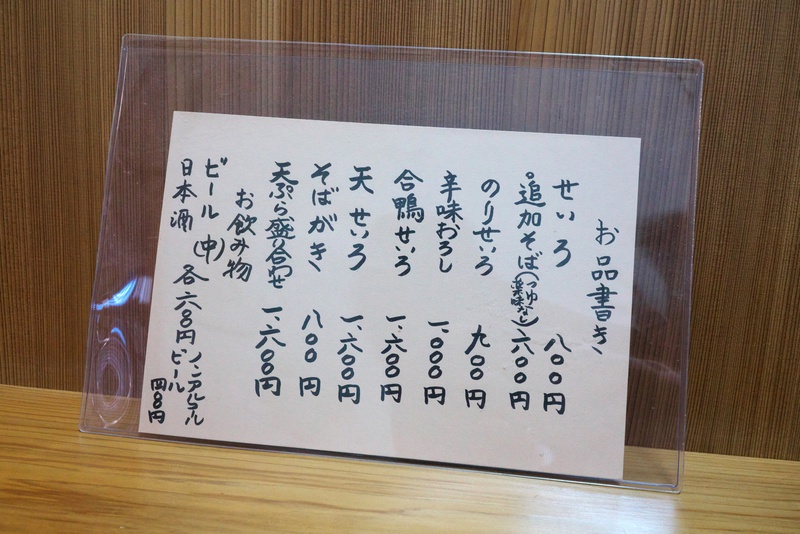 お品書き
せいろ 八〇〇円
追加そば(つゆ薬味なし) 六〇〇円
のりせいろ 九〇〇円
辛味おろし 一、〇〇〇円
合鴨せいろ 一、六〇〇円
天せいろ 一、六〇〇円
そばがき 八〇〇円
天ぷら盛り合わせ 一、六〇〇円
お飲み物
ビール(中)
日本酒
各六〇〇円
ノンアルコール
ビール
四〇〇円